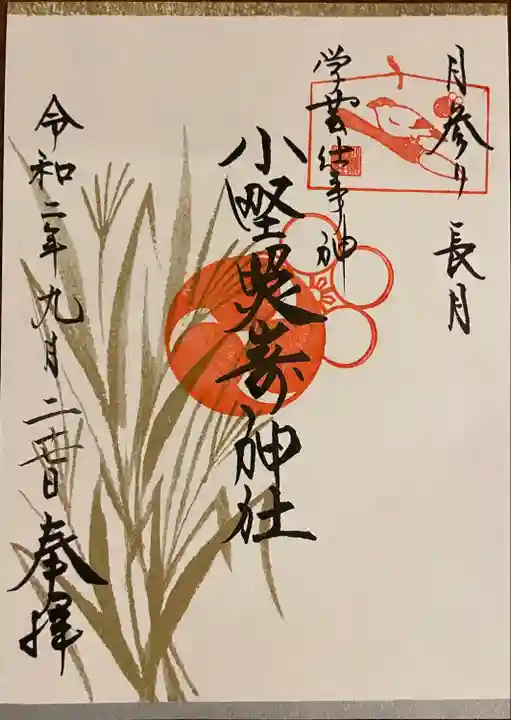 月参り 長月
学藝仕事神
小野照嵜神社
令和二年九月 日 奉拝